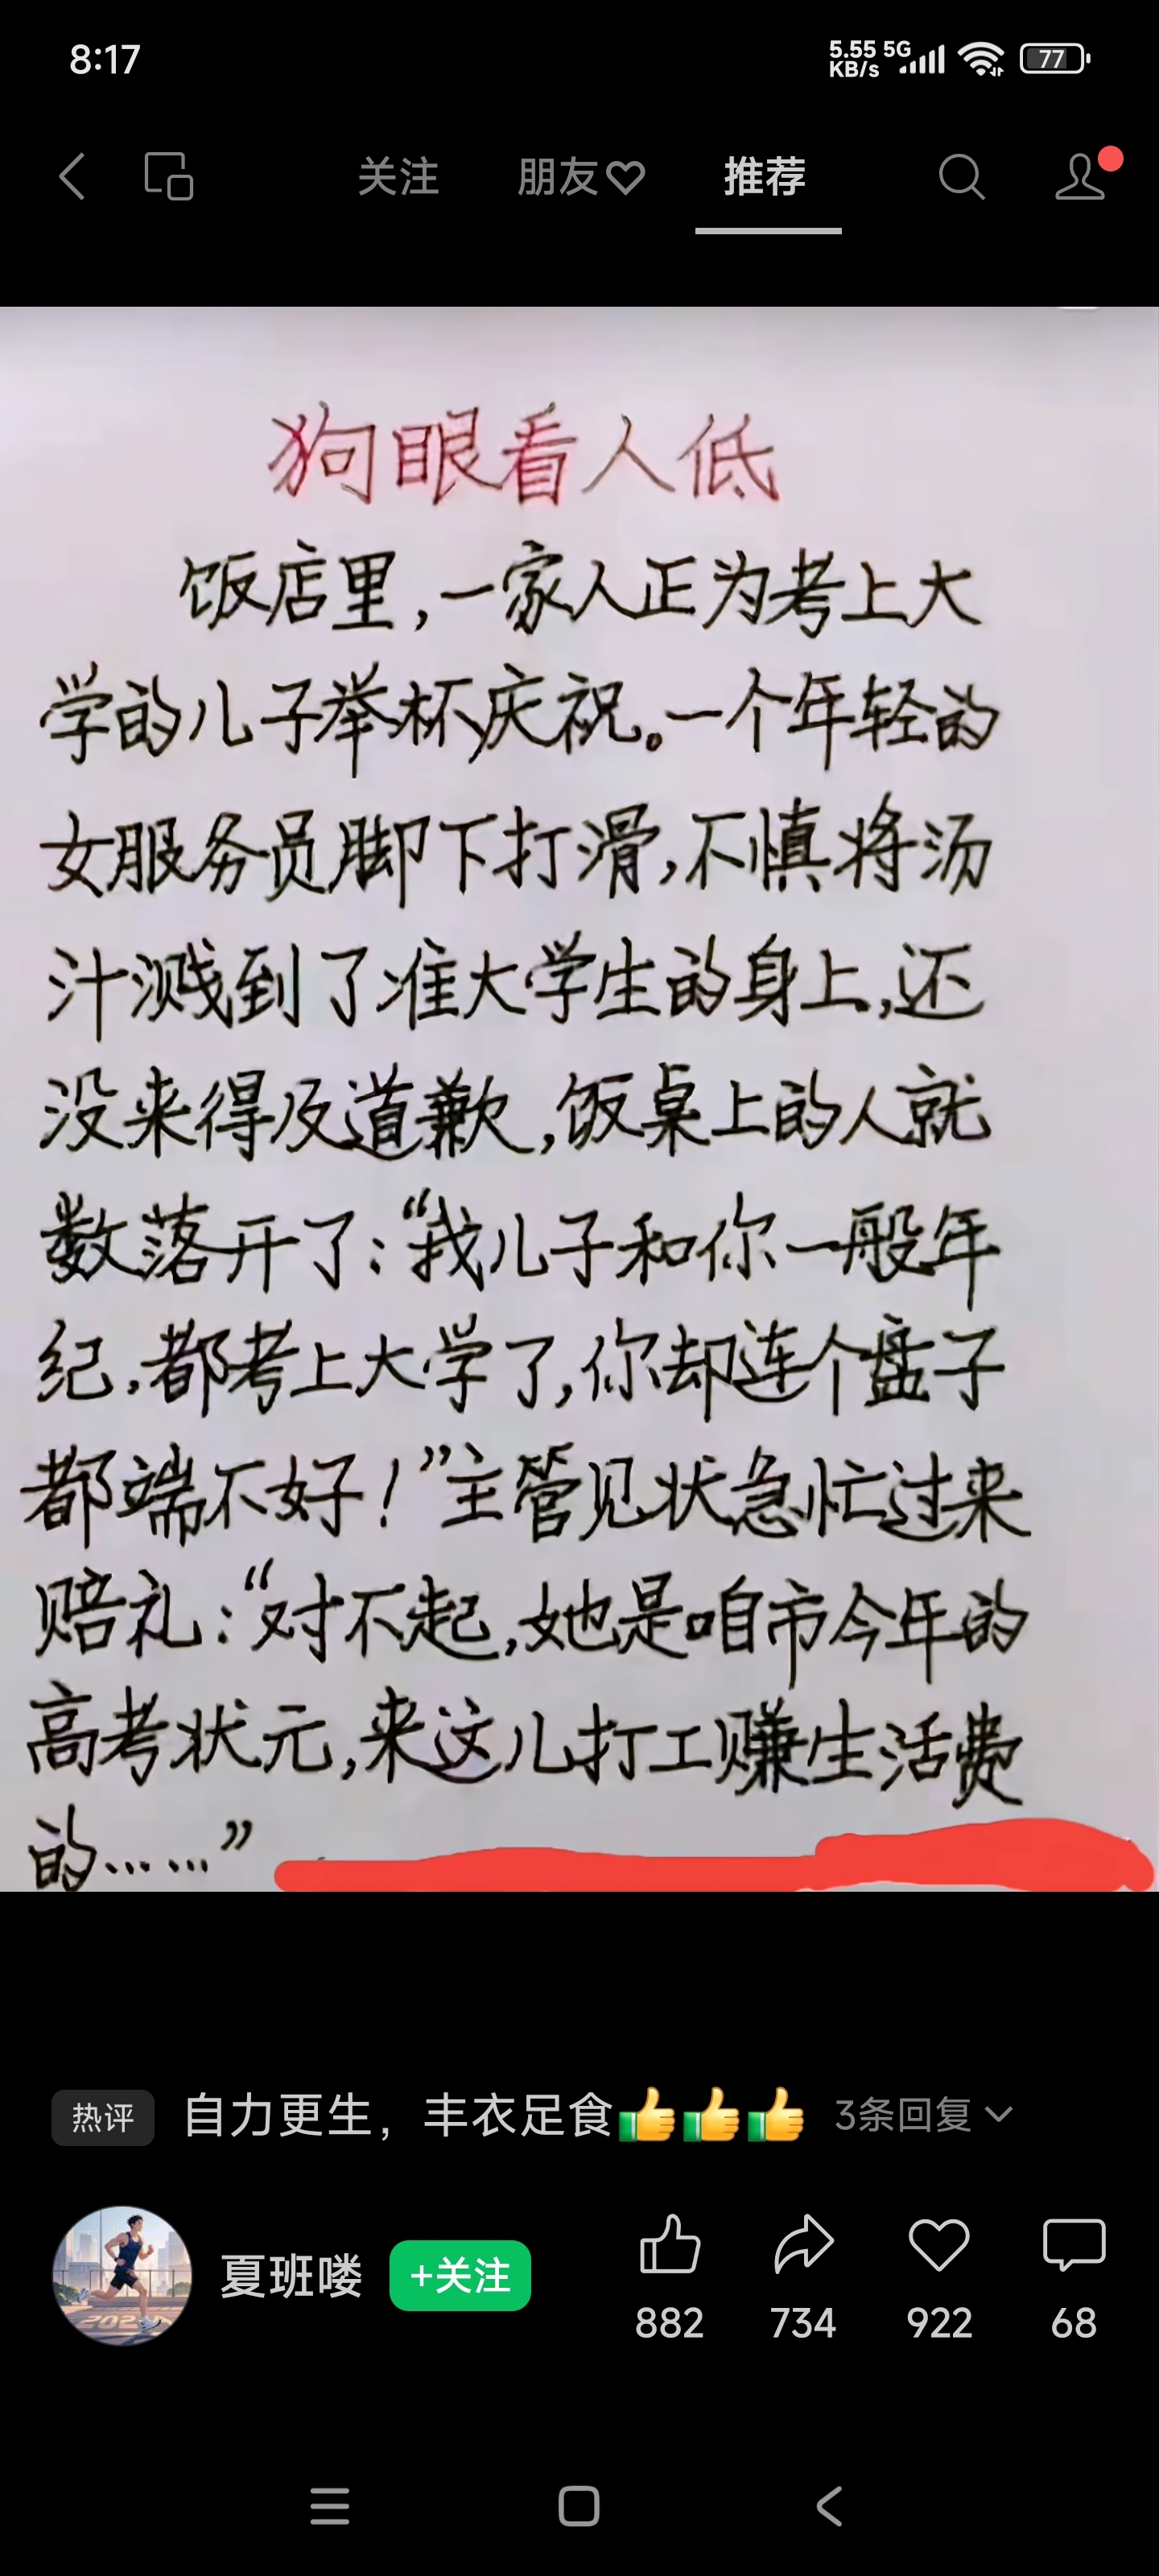 8:17
5.55 5G
KB/s
77
关注 朋友 推荐
狗眼看人低
饭店里,一家人正为考上大
学的儿子举杯庆祝。一个年轻的
女服务员脚下打滑,不慎将汤
汁溅到了准大学生的身上,还
没来得及道歉,饭桌上的人就
数落开了:“我儿子和你一般年
纪,都考上大学了,你却连个盘子
都端不好!”主管见状急忙过来
赔礼:“对不起,她是咱市今年的
高考状元,来这儿打工赚生活费
的……”
热评 自力更生，丰衣足食👍👍👍 3条回复
夏班喽 +关注
882 734 922 68